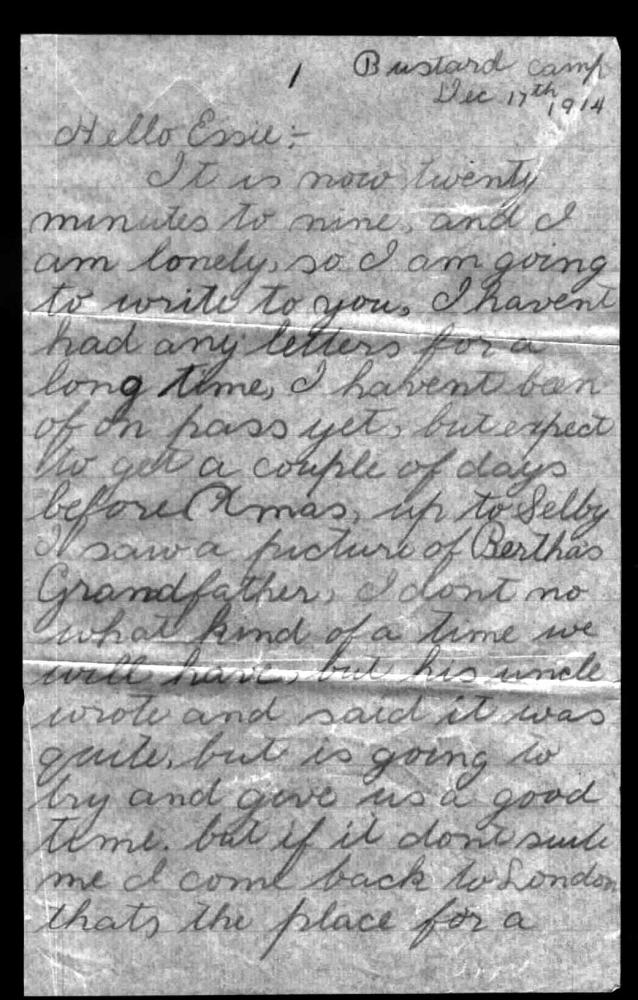 1 Bustard camp
Dec 17th 1914
Hello Essie:-
It is now twenty
minutes to nine, and I
am lonely, so I am going
to write to you, I havent
had any letters for a
long time, I havent been
of on pass yet, but expect
to get a couple of days
before Xmas, up to Selby
I saw a picture of Berthas
Grandfather, I dont no
what kind of a time we
will have, but his uncle
wrote and said it was
quite, but is going to
try and give us a good
time. but if it dont suite
me I come back to London
thats the place for a